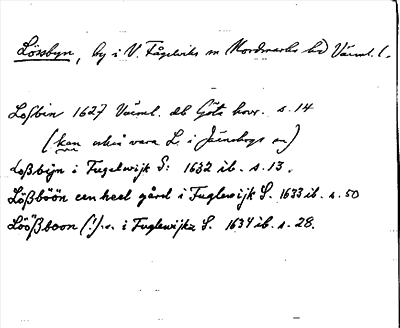 Lössbyn, by i V. Fågelviks sn Nordmarks hd Värml. l.
Loſbin 1627 Värml. db Göta hovr. s. 14
(kan också vara L. i Järnskogs sn)
Loßbÿn i Fugelwijk S: 1632 ib. s. 13.
Lößböön een heel gård i Fuglewijk S. 1633 ib. s. 50
Löößboon (!) i Fuglewijkz S. 1634 ib. s. 28.